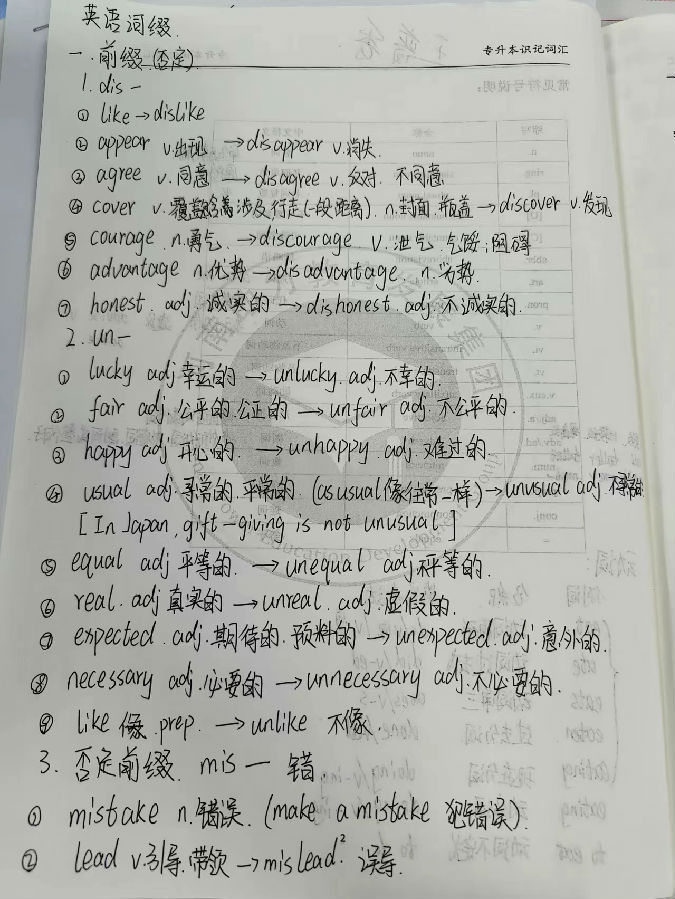 英语词缀
专升本识记词汇
一.前缀(否定)
1. dis-
① like→dislike
② appear v.出现 →disappear v.消失.
③ agree v.同意 →disagree v.反对.不同意
④ cover v.覆盖 涉及行走(一段距离). n.封面.瓶盖→discover v.发现
⑤ courage n.勇气.→discourage. v.泄气.气馁;阻碍
⑥ advantage n.优势→disadvantage. n.劣势.
⑦ honest. adj.诚实的→dishonest.adj.不诚实的.
2. un-
① lucky adj.幸运的→unlucky.adj.不幸的.
② fair adj.公平的.公正的→unfair adj.不公平的.
③ happy adj 开心的.→unhappy.adj.难过的
④ usual adj.寻常的.平常的.(as usual像往常一样)→unusual adj
[In Japan, gift-giving is not unusual.]
⑤ equal adj平等的.→unequal adj不平等的.
⑥ real.adj真实的→unreal.adj.虚假的.
⑦ expected.adj.期待的.预料的→unexpected.adj.意外的.
⑧ necessary adj.必要的→unnecessary adj.不必要的.
⑨ like 像.prep.→unlike 不像
3. 否定前缀 mis-错.
① mistake n.错误.(make a mistake 犯错误).
② lead v.引导.带领→mislead² 误导.